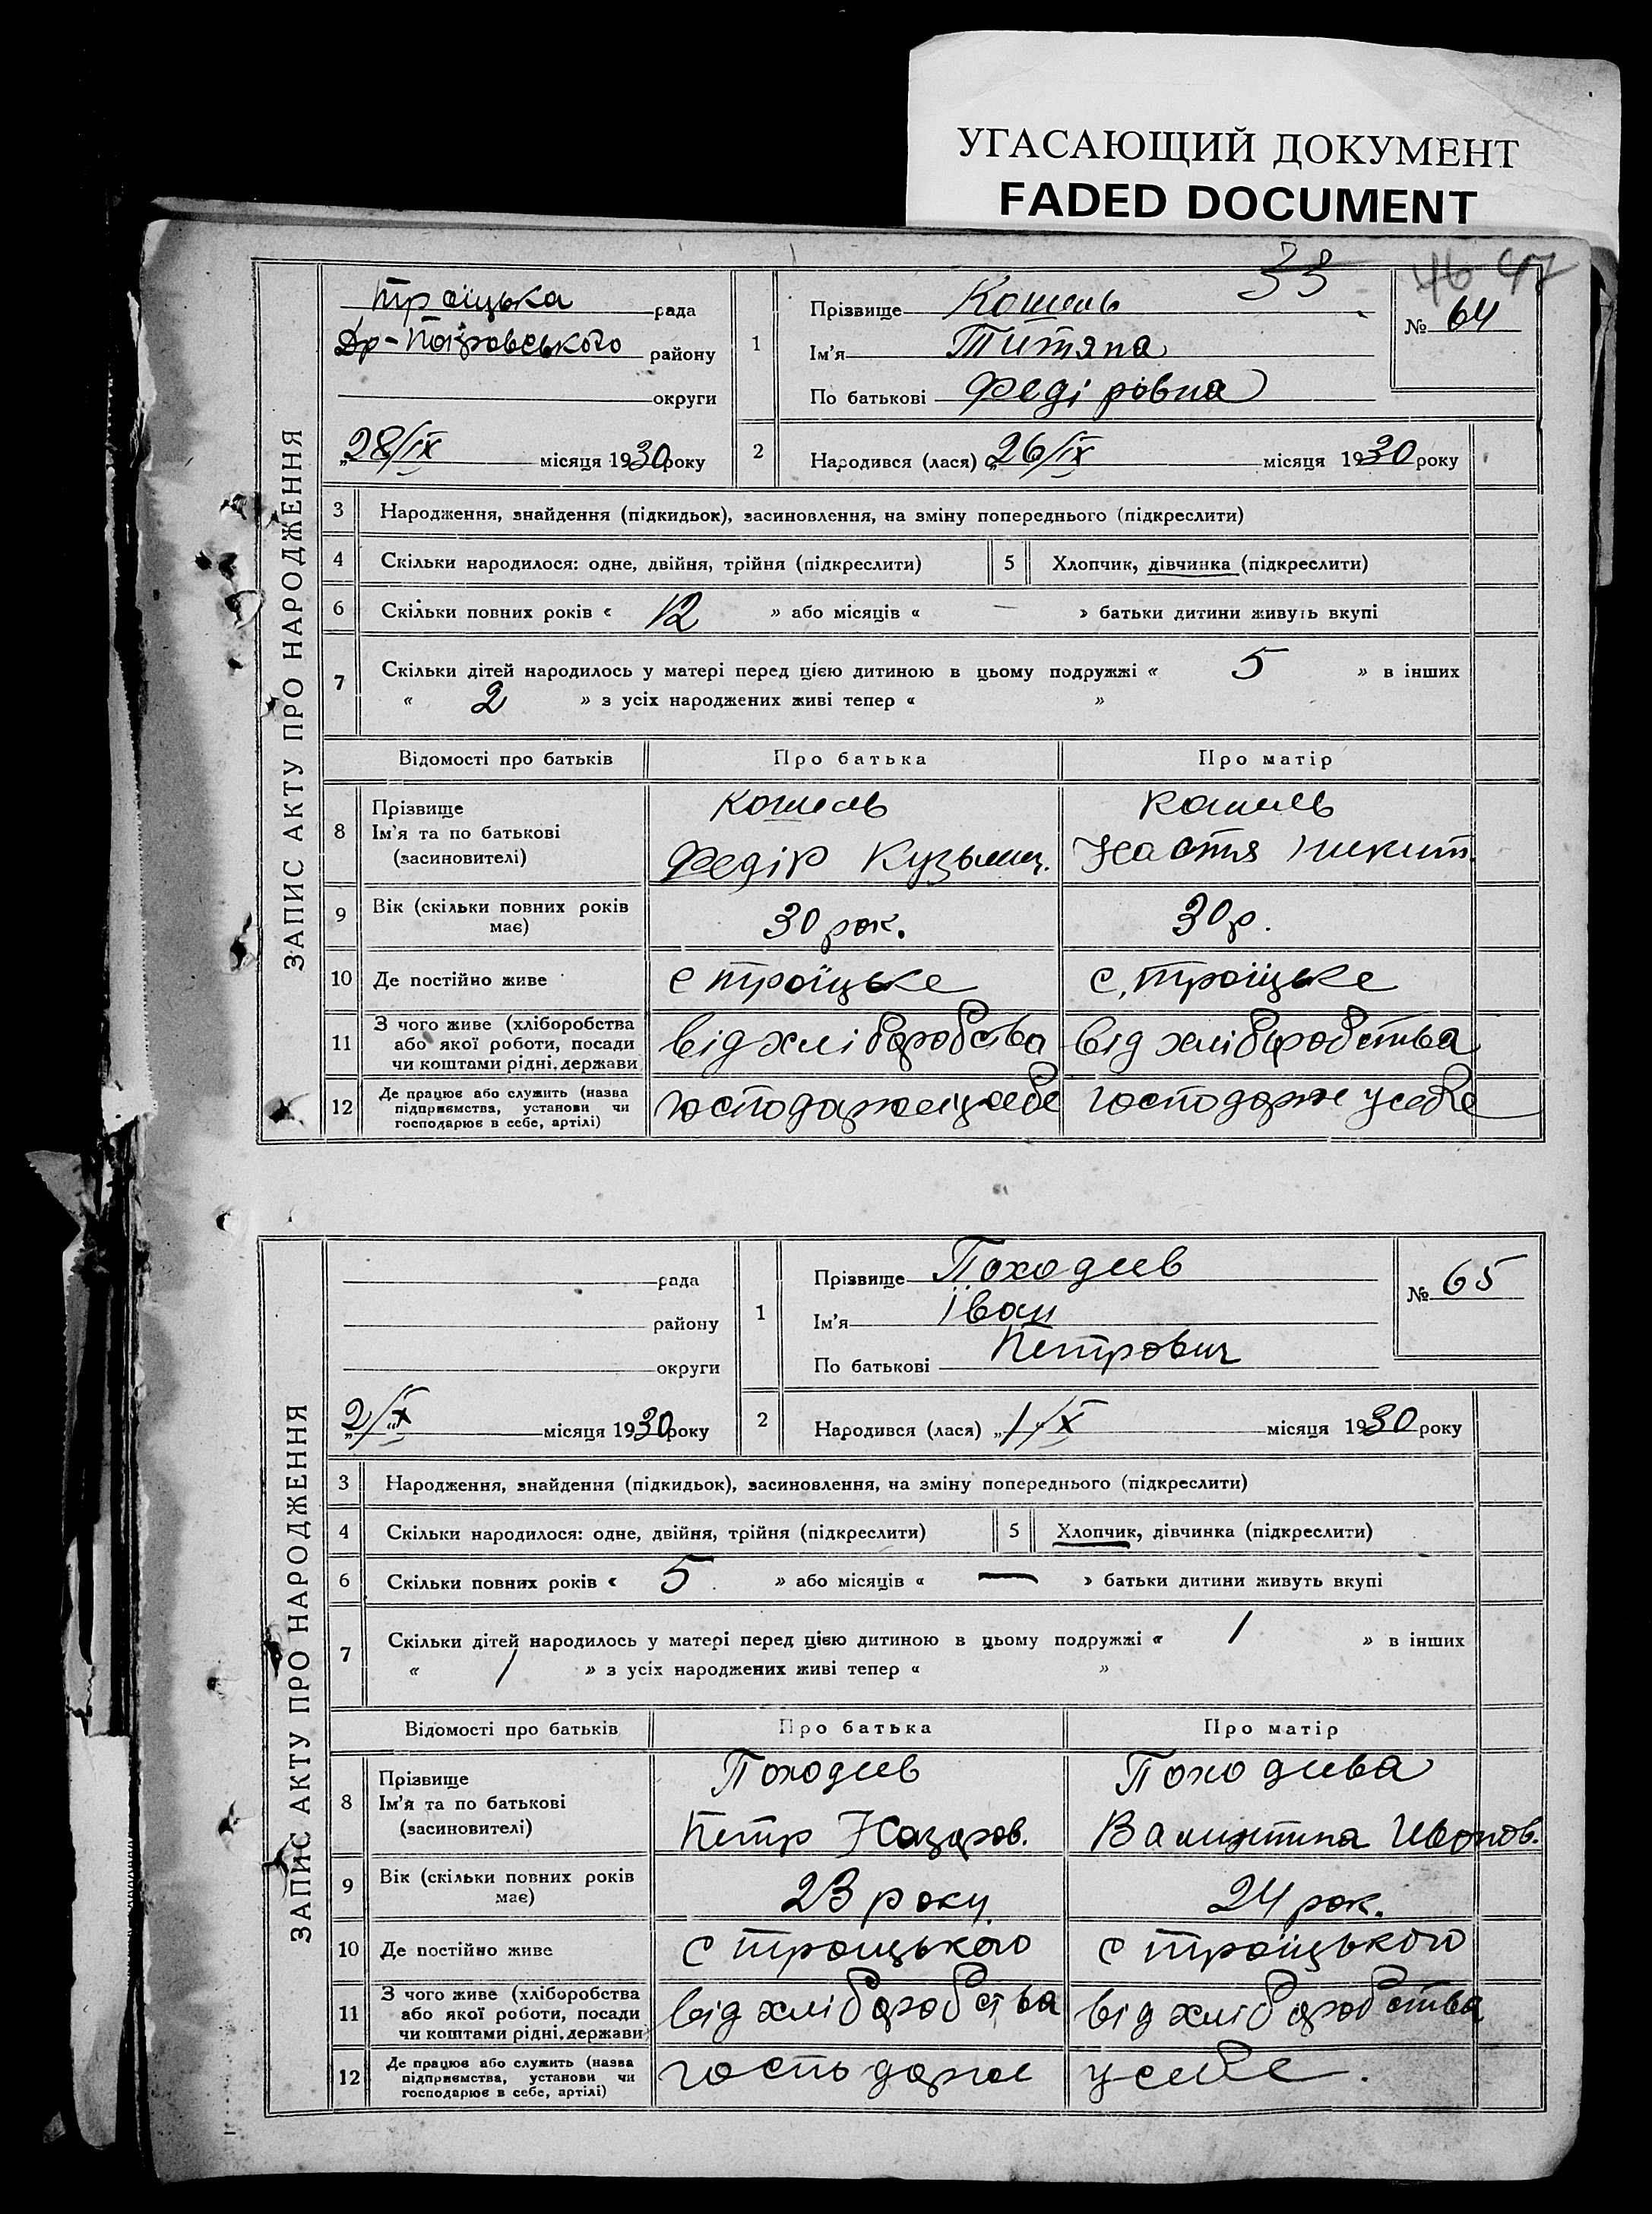 УГАСАЮЩИЙ ДОКУМЕНТ
FADED DOCUMENT
33
46 47
ЗАПИС АКТУ ПРО НАРОДЖЕННЯ
Троїцька рада
району
округи
„28/IX місяця 1930 року
1
Прізвище Кошель
Ім’я Титяна
По батькові Федіровна
№ 64
2
Народився (лася) „26/IX місяця 1930 року
3 Народження, знайдення (підкидьок), засиновлення, на зміну попереднього (підкреслити)
4 Скільки народилося: одне, двійня, трійня (підкреслити) 5 Хлопчик, дівчинка (підкреслити)
6 Скільки повних років « 12 » або місяців « — » батьки дитини живуть вкупі
7 Скільки дітей народилось у матері перед цією дитиною в цьому подружжі « 5 » в інших
« 2 » з усіх народжених живі тепер « »
Відомості про батьків Про батька Про матір
8 Прізвище
Ім’я та по батькові
(засиновителі)
Кошель
Федір Кузьмич.
Кошель
Настя Никит.
9 Вік (скільки повних років має) 30 рок. 30 р.
10 Де постійно живе с троїцьке с, троїцьке
11 З чого живе (хліборобства
або якої роботи, посади
чи коштами рідні, держави
від хліборобства від хліборобства
12 Де працює або служить (назва
підприємства, установи чи
господарює в себе, артілі)
господарює у себе господарює у себе
ЗАПИС АКТУ ПРО НАРОДЖЕННЯ
рада
району
округи
„2/X місяця 1930 року
1
Прізвище Походеев
Ім’я Іван
По батькові Петрович
№ 65
2
Народився (лася) „1/X місяця 1930 року
3 Народження, знайдення (підкидьок), засиновлення, на зміну попереднього (підкреслити)
4 Скільки народилося: одне, двійня, трійня (підкреслити) 5 Хлопчик, дівчинка (підкреслити)
6 Скільки повних років « 5 » або місяців « — » батьки дитини живуть вкупі
7 Скільки дітей народилось у матері перед цією дитиною в цьому подружжі « 1 » в інших
« 1 » з усіх народжених живі тепер « »
Відомості про батьків Про батька Про матір
8 Прізвище
Ім’я та по батькові
(засиновителі)
Походеев
Петр Назаров.
Походеева
Валинтина Иванов.
9 Вік (скільки повних років має) 23 року. 24 рок.
10 Де постійно живе с троицького с троїцького
11 З чого живе (хліборобства
або якої роботи, посади
чи коштами рідні, держави
від хліборобства від хліборобства
12 Де працює або служить (назва
підприємства, установи чи
господарює в себе, артілі)
господарює у себе.